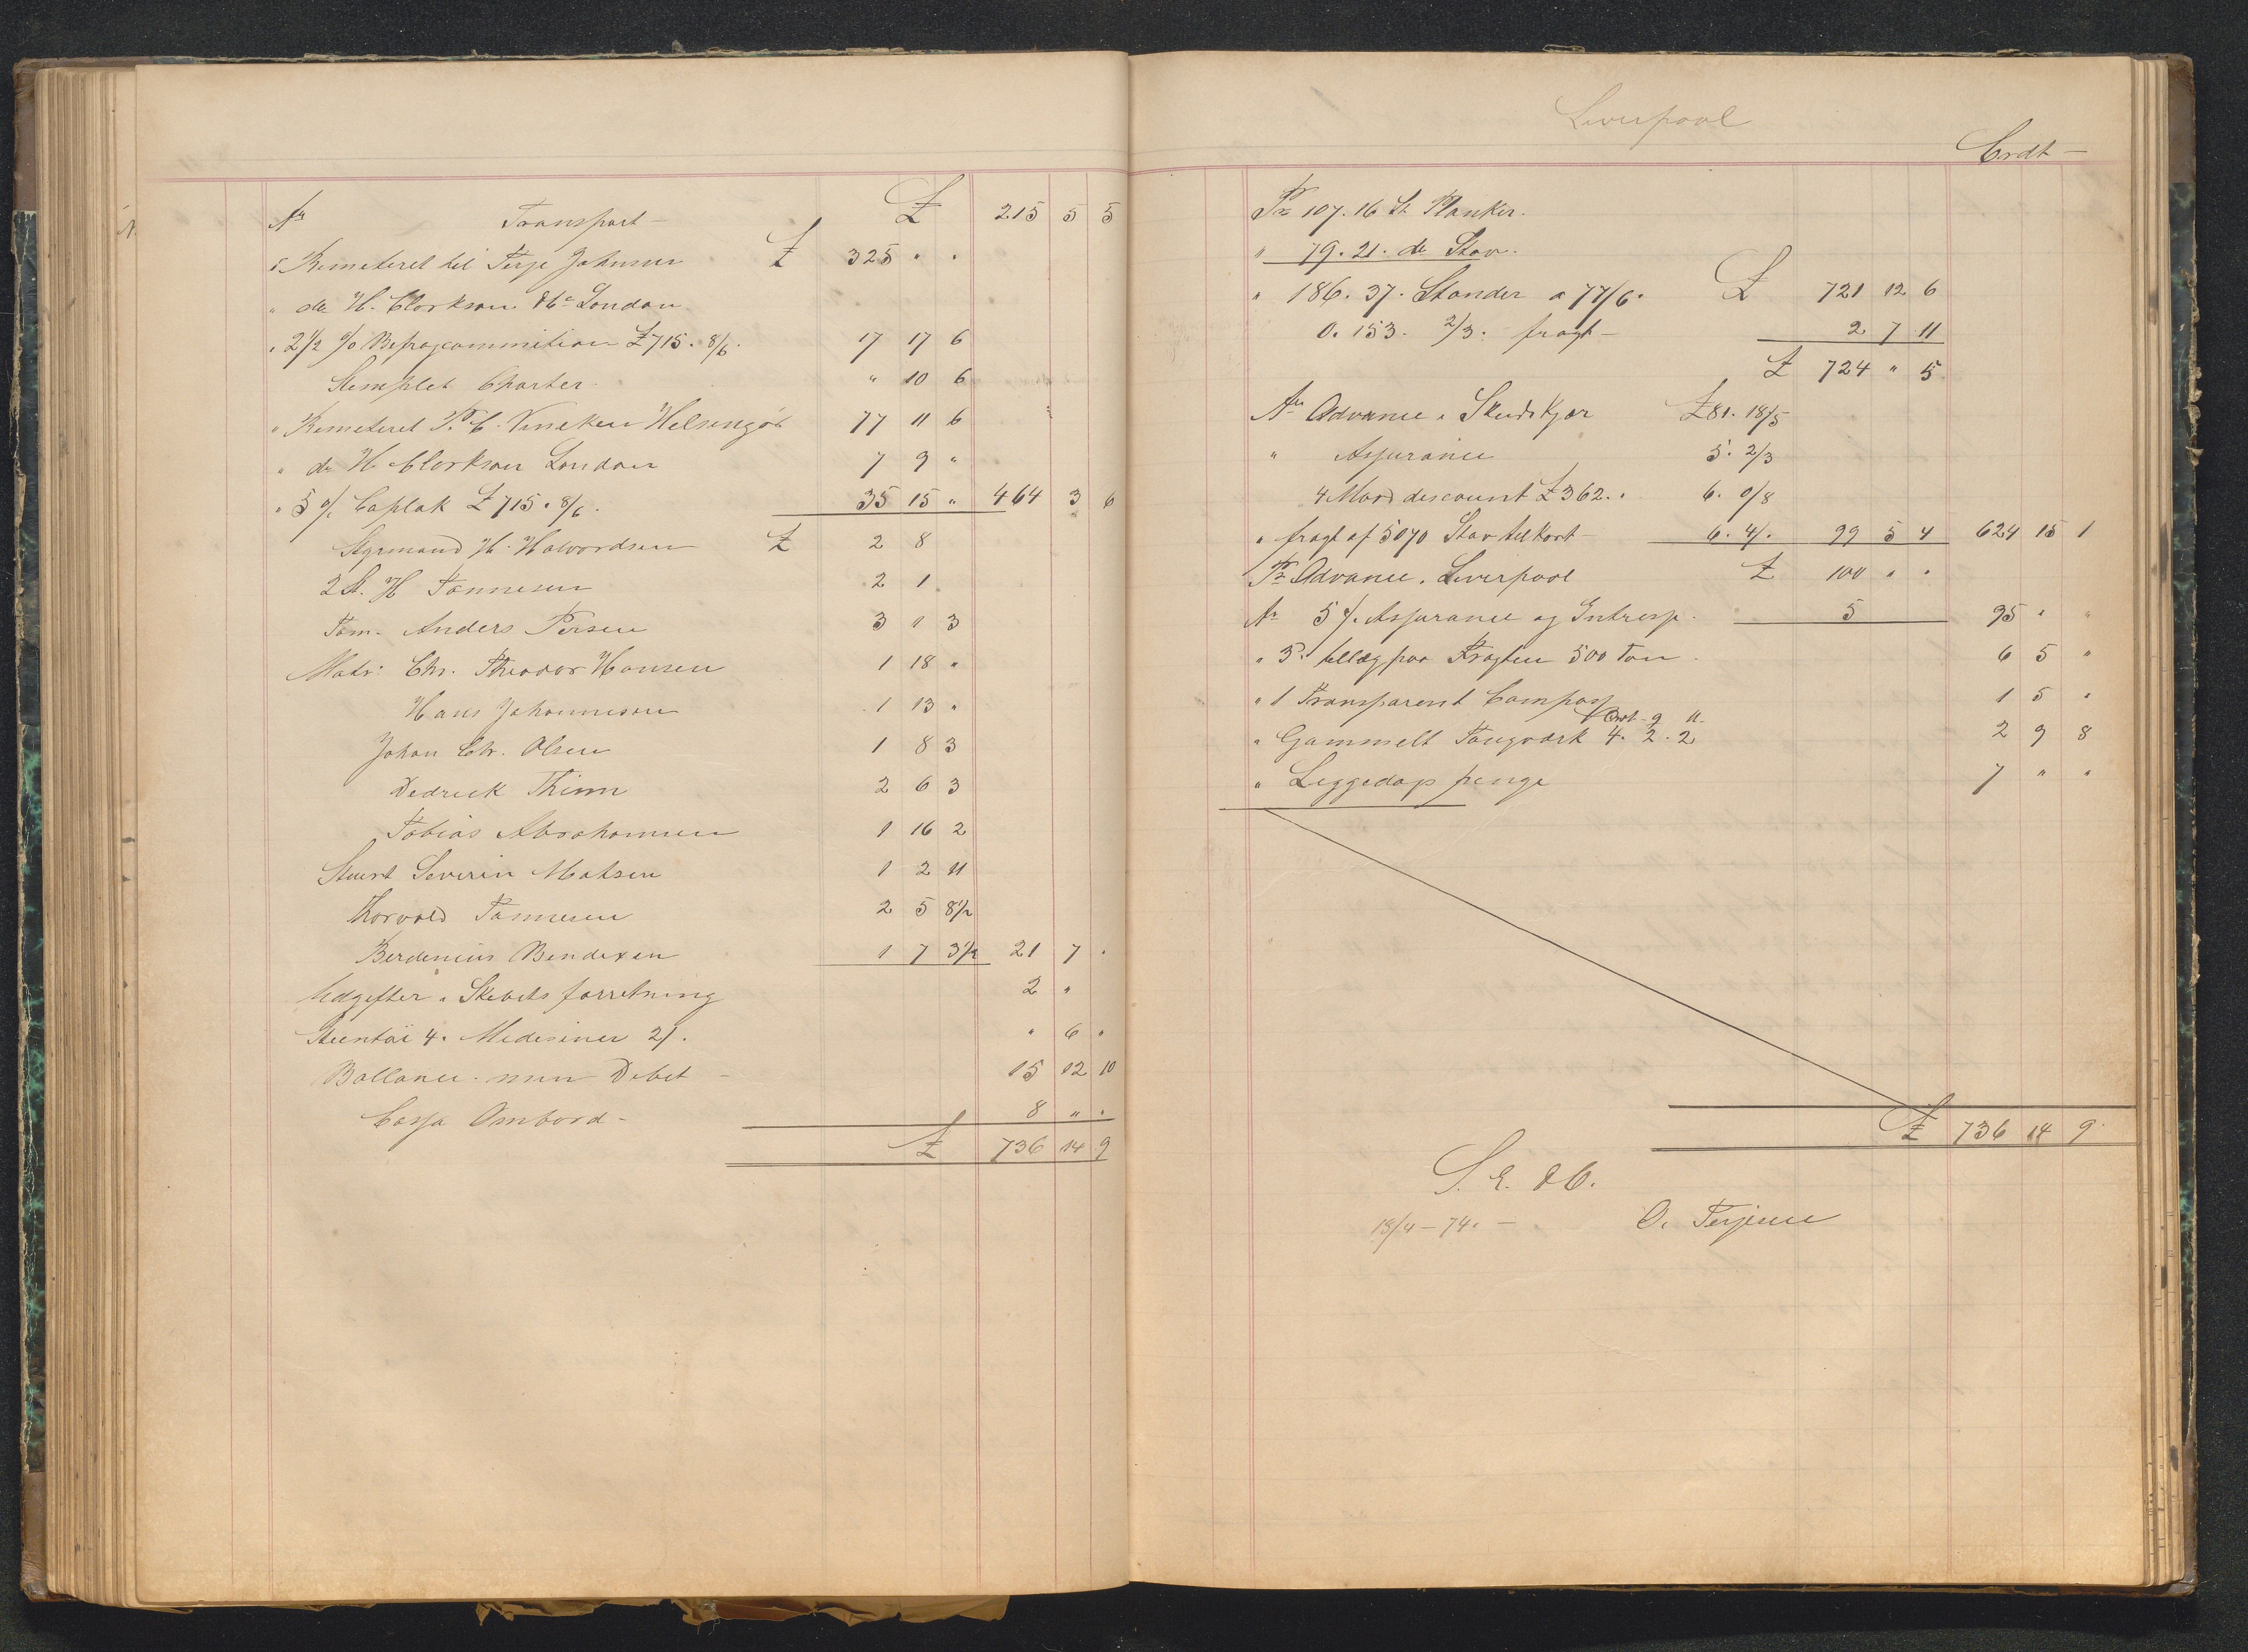 An Transport £ 215 5 5
" Remeteret til Terje Johnsen £ 325 " "
" do H. Clarkson & Co London
" 2 1/2 % Befragcommition £ 715. 8/6. 17 17 6
Stemplet Charter " 10 6
" Remeteret P. C. Vineken Helsingør 77 11 6
" do H. Clarkson London 7 9 "
" 5 % Caplak £ 715. 8/6. 35 15 " 464 3 6
Styrmand H. Halvordsen £ 2 8
2 St. H Tønnesen 2 1
Tøm. Anders Persen 3 1 3
Matr: Chr. Theodor Hansen 1 18 "
Hans Johannesen 1 13 "
Johan Chr. Olsen 1 8 3
Dedrick Thinn 2 6 3
Tobias Abrahamsen 1 16 2
Stuert Severin Matsen 1 2 11
Thorvald Tønnesen 2 5 8 1/2
Berdenius Bendixen 1 7 3 1/2 21 7 "
Udgifter i Skibets forretning 2 "
Steentøi 4. Medesiner 2/. " 6 "
Ballance. min Debet - 15 12 10
Cassa Ombord - 8 " "
£ 736 14 9
Liverpool
Crdt -
Pr 107. 16 St Planker.
" 79. 21. do Stav.
" 186. 37. Stander a 77/6. £ 721 12 6
0. 153. 2/3. fragt - 2 7 11
£ 724 " 5
An Advance i Skudekjær £ 81. 18/5
" Assurance 5. 2/3
4 Mdrs discount £ 362. " 6. 0/8
" fragt af 5070 Stav tilkort - 6. 4/. 99 5 4 624 15 1
Pr Advance. Liverpool £ 100 " "
An 5 %. Assurance og Intresse. 5 95 " "
" 3d tillæg paa Fragten 500 Ton. 6 5 "
" 1 Transparent Compas 1 5 "
" Gammelt Tougværk 4. 2. 2 2 9 8
" Leggedags penge 7 " "
£ 736 14 9
S. E. & O.
18/4 - 74. - O. Terjesen